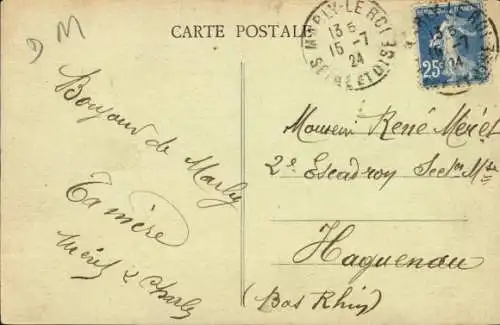 CARTE POSTALE
MARLY-LE-ROI
13 5
15 -7
24
SEINE ET OISE
25c
Bonjour de Marly
Ta mère
Monsieur René Méret
2e Escadron
Haguenau
(Bas Rhin)